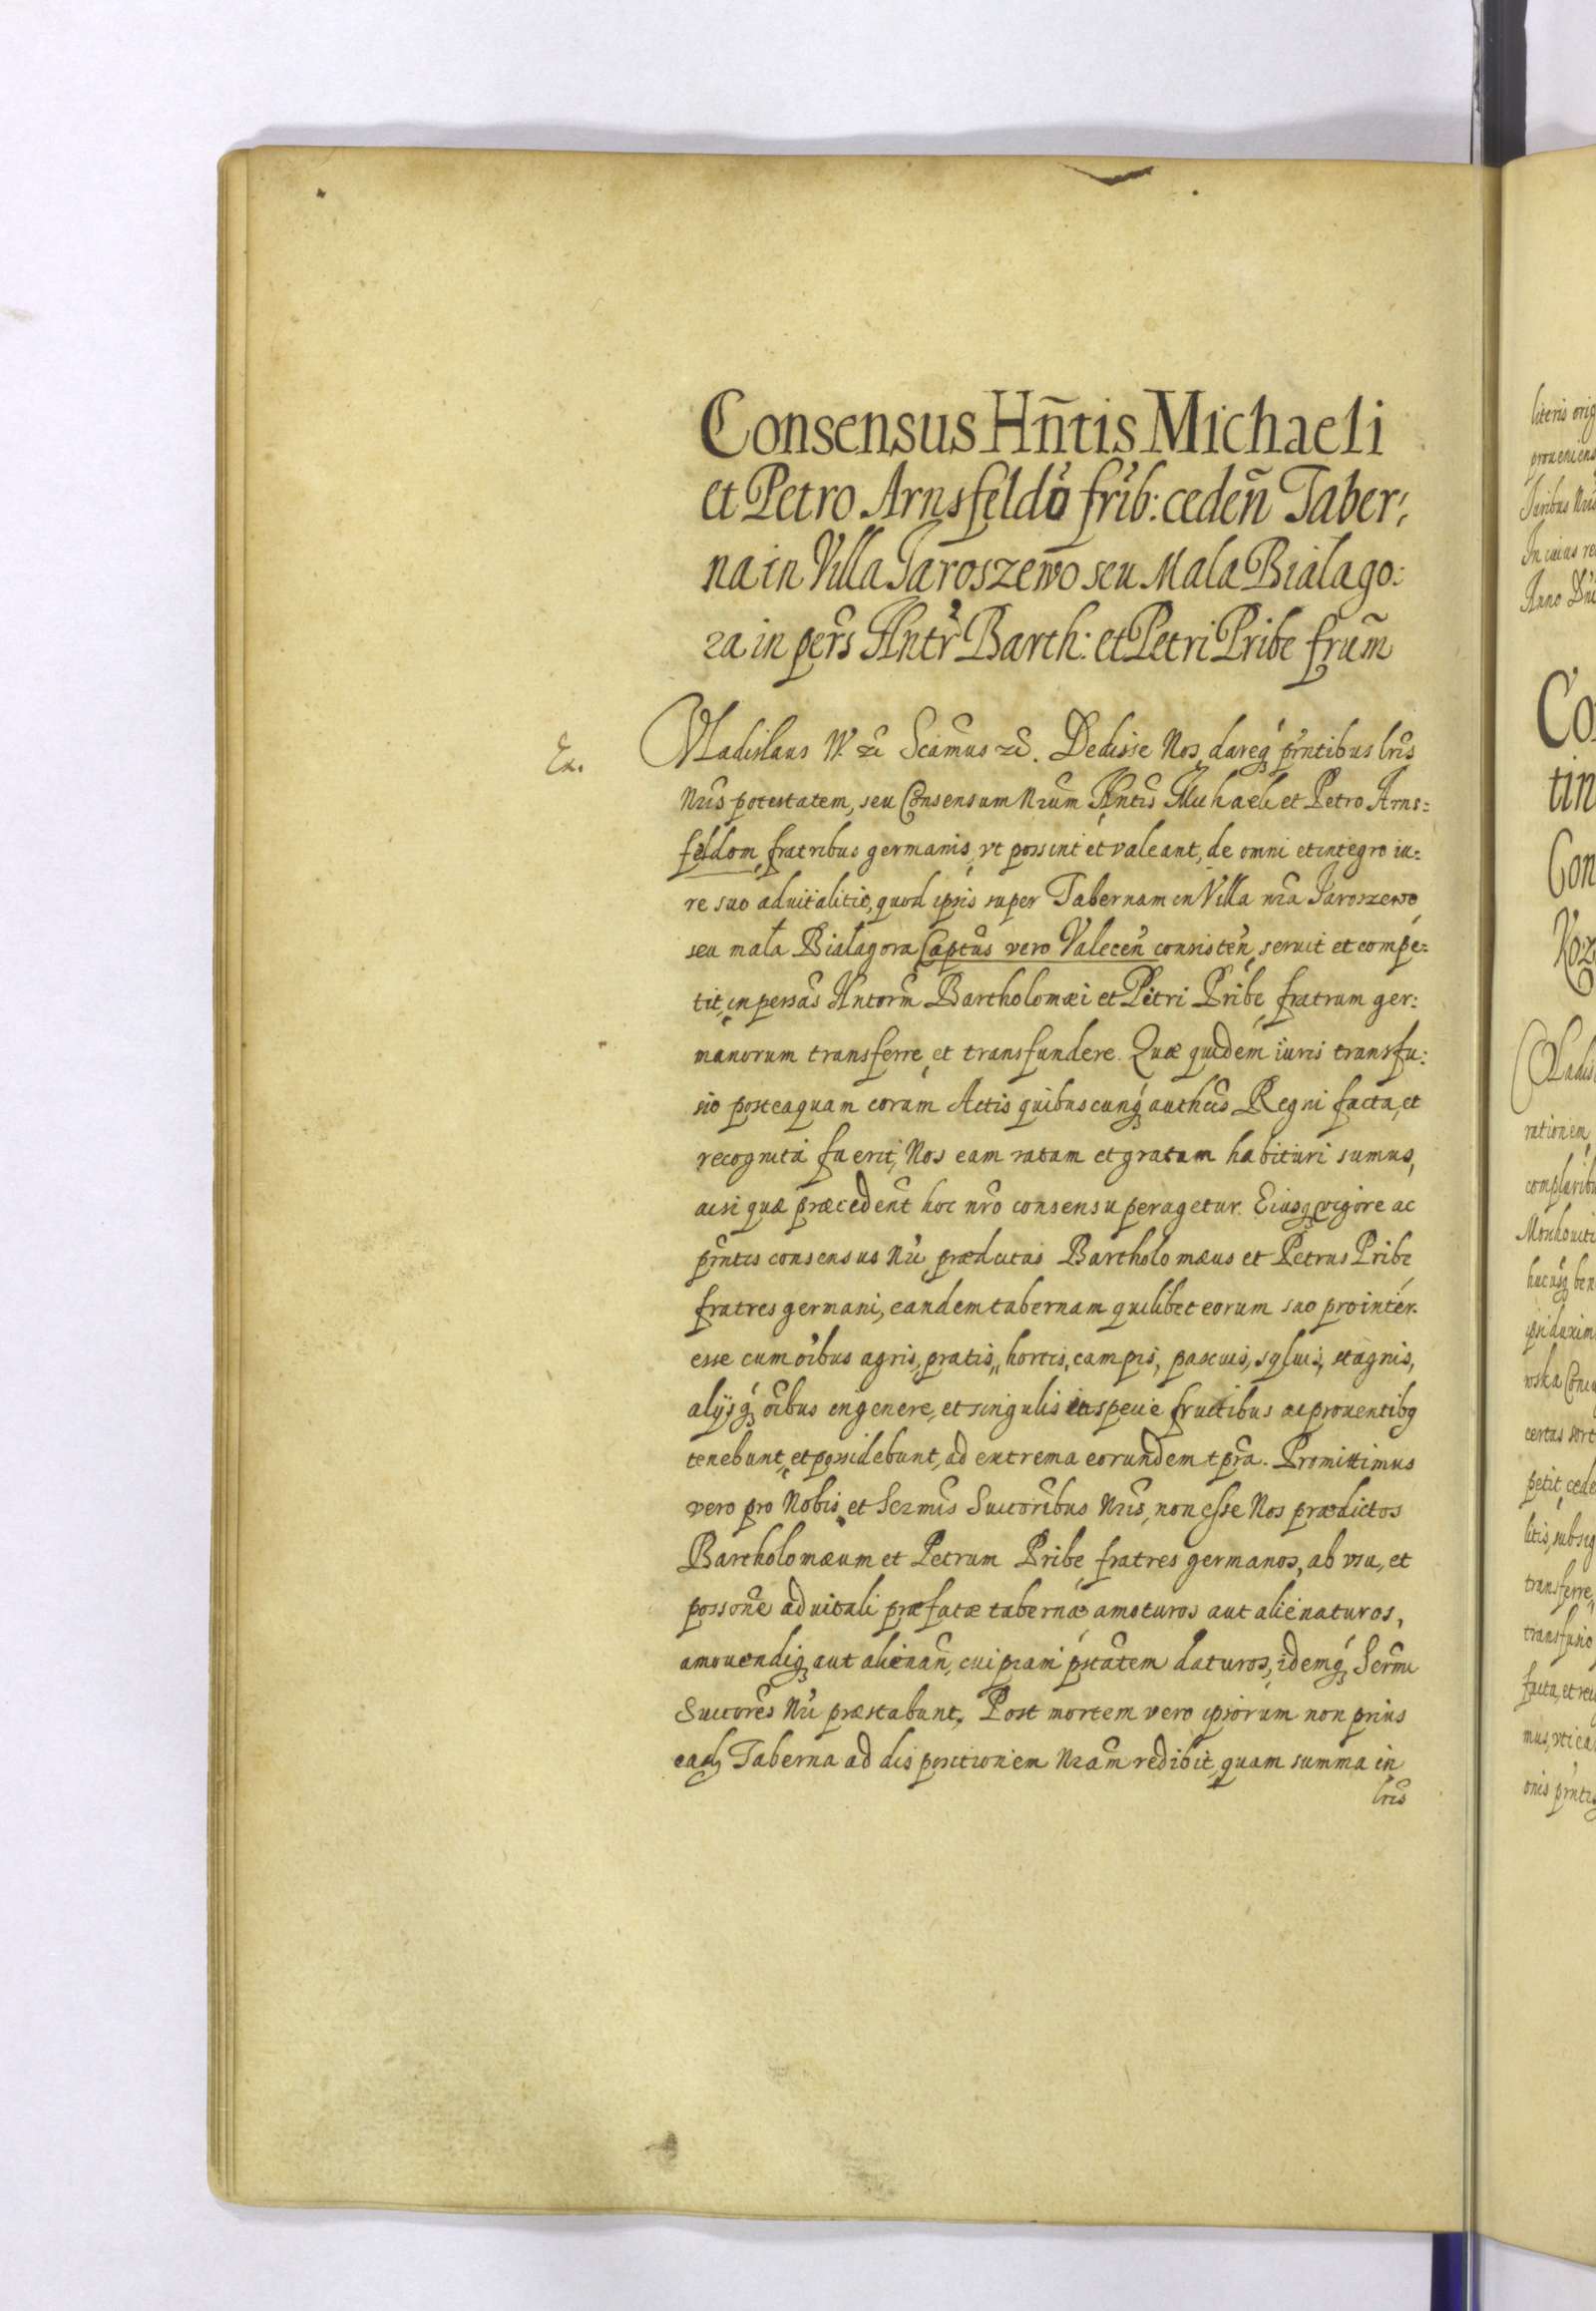 Consensus Hñtis Michaeli
et Petro Arnsfeldõ frib: cedeñ Taber:
na in Villa Jaroszewo seu Mala Bialago:
ra in pers Hntr Barth: et Petri Pribe frum
Ex.
Vladislaus IV. etc Scimus etc. Dedisse Nos, dareq prntibus lris
Nris potestatem, seu Consensum Nrum Hntis Michaeli et Petro Arns=
feldom fratribus germanis, vt possint et valeant, de omni et integro iu=
re suo aduitalitio, quod ipsis super Tabernam in Villa nra Jaroszewo
seu mała Białagora Captus vero Valecen consisten, seruit et compe=
tit, in persas Hntorm Bartholomæi et Petri Pribe fratrum ger:
manorum transferre, et transfundere. Quæ quidem iuris transfu:
sio posteaquam coram Actis quibuscunq authcis Regni facta, et
recognita fuerit, Nos eam ratam et gratam habituri sumus,
acsi quæ præcedent hoc nro consensu peragetur. Eiusq vigore ac
prntis consensus Nri prædictus Bartholomæus et Petrus Pribe
fratres germani, eandem tabernam quilibet eorum suo pro inter=
esse cum oibus agris, pratis, hortis, campis, pascuis, syluis, stagnis,
alijsq oibus in genere, et singulis in specie fructibus ac prouentibq
tenebunt, et possidebunt, ad extrema eorundem tpra. Promittimus
vero pro Nobis, et Sermis Succoribus Nris, non esse Nos prædictos
Bartholomæum et Petrum Pribe fratres germanos, ab vsu, et
possone aduitali præfatæ tabernæ amoturos aut alienaturos,
amouendiq aut alienan, cuipiam ptatem daturos, idemq Sermi
Succores Nri præstabunt. Post mortem vero ipsorum non prius
eadq Taberna ad dispositionem Nram redibit, quam summa in
lris
literis orig
proueniens
Juribus Nris
In cuius re
Anno Dni
Co
tin
Con
Koz
Vladis
rationem
complaribu
hucusq ben
certas sort
petit, cede
litis, subseq
transferre,
transfusio
facta, et rec
mus, vti ea
onis prntis